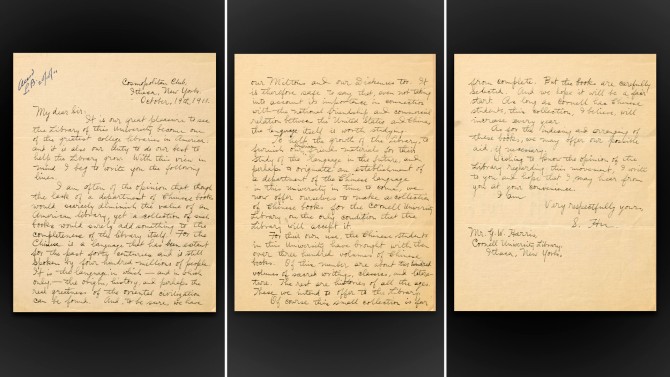 Cosmopolitan Club
Ithaca, New York.
October, 19th, 1911.
My dear Sir:
It is our great pleasure to see
the Library of this University become one
of the greatest college libraries in America,
and it is also our duty to do our best to
help the Library grow. With this view in
mind I beg to write you the following
lines.
I am often of the opinion that though
the lack of a department of Chinese books
would scarcely diminish the value of an
American library, yet a collection of such
books would surely add something to the
completeness of the library itself. For the
Chinese is a language that has been extant
for the past forty centuries and is still
spoken by four hundred millions of people.
It is the language in which — and in which
only — the origin, history, and perhaps the
real greatness of the oriental civilization
can be found. And, to be sure, we have
our Miltons and our Dickenses too. It
is therefore safe to say that, even not taking
into account its importance in connection
with the national friendship and commercial
relation between the United States and China,
the language itself is worth studying.
To help the growth of the library, to
furnish some materials for the
study of the language in the future, and
perhaps to originate an establishment of
a department of the Chinese language
in this university in time to come, we
now offer ourselves to make a collection
of Chinese books for the Cornell University
Library, on the only condition that the
Library will accept it.
For their own use the Chinese students
in this University have brought with them
over three hundred volumes of Chinese
books. Of this number are about two hundred
volumes of sacred writings, classics, and litera-
ture. The rest are histories of all the ages.
These we intend to offer to the Library.
Of course this small collection is far
from complete. But the books are carefully
selected. And we hope it will be a fair
start. As long as Cornell has Chinese
students, this collection, I believe, will
increase every year.
As for the indexing and arranging of
these books, we may offer our possible
aid, if necessary.
Wishing to know the opinion of the
Library regarding this movement, I write
to you and hope that I may hear from
you at your convenience.
I am
Very respectfully yours,
S. Hu
Mr. G. W. Harris
Cornell University Library
Ithaca, New York.